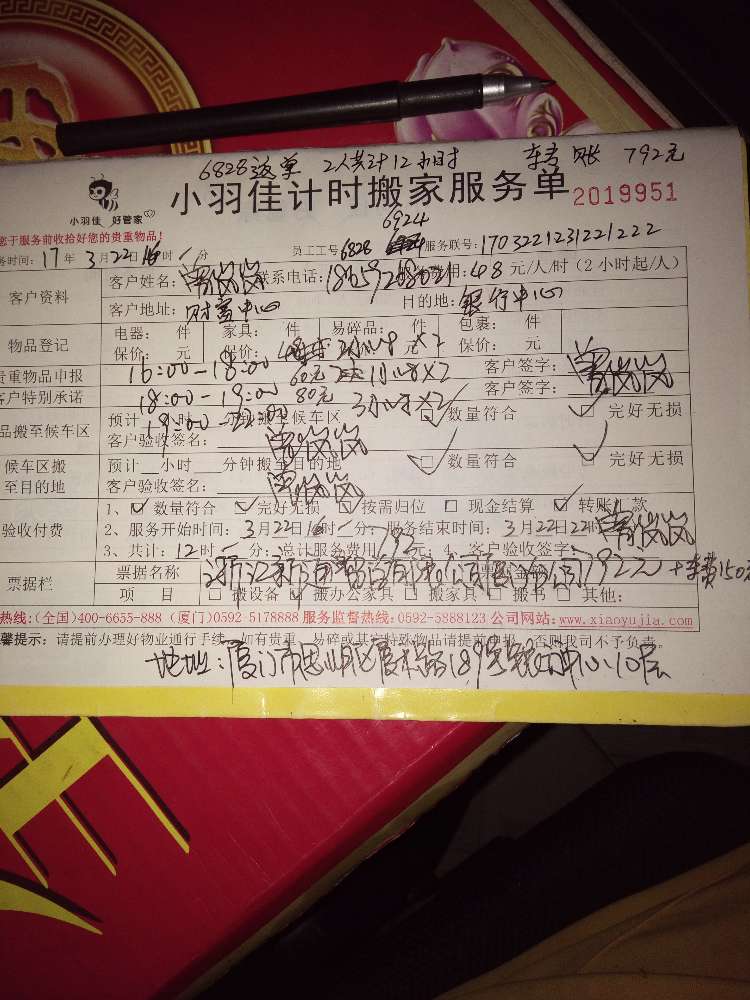 6828返单 2人共计12小时 转账 792元
小羽佳 好管家
小羽佳计时搬家服务单 2019951
您于服务前收拾好您的贵重物品!
6924
务时间: 17年3月22日16时 分 员工工号 6828 服务联号: 1703221231221222
客户资料 客户姓名: 联系电话: 费用: 48元/人/时(2小时起/人)
客户地址: 财富中心 目的地: 银行中心
物品登记 电器: 件 家具: 件 易碎品: 件 包裹: 件
保价: 元 保价: 元 2小时 元×2 保价: 元
贵重物品申报 16:00-18:00 客户签字:
客户特别承诺 18:00-19:00 60元 1小时×2 客户签字:
19:00-22:00 80元 3小时×2
品搬至候车区 预计 时 分钟搬至候车区 数量符合 完好无损
客户验收签名:
候车区搬至目的地 预计 小时 分钟搬至目的地 数量符合 完好无损
客户验收签名:
验收付费 1、数量符合 完好无损 按需归位 现金结算 转账付款
2、服务开始时间: 3月22日16时 分; 服务结束时间: 3月22日22时
3、共计: 12时 分; 总计服务费用 792元; 4、客户验收签字:
票据栏 票据名称 792元+车费150元
项 目 搬设备 搬办公家具 搬家具 搬书 其他:
热线:(全国)400-6655-888 (厦门)0592 5178888 服务监督热线:0592-5888123 公司网站:www.xiaoyujia.com
馨提示: 请提前办理好物业通行手续,如有贵重、易碎或其它特殊物品请提前申报,否则我司不予负责。
地址: 厦门市思明区 189号银行中心10层